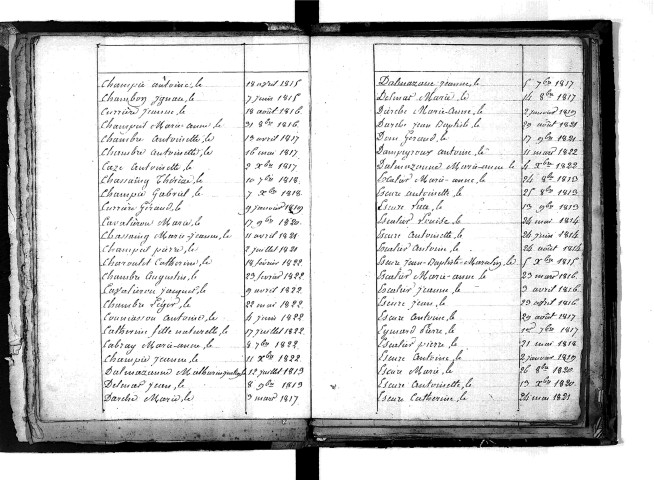 Champié antoine, le 18 avril 1815
Chambon Ignace, le 7 juin 1815
Currière Jeanne, le 18 août 1816
Champeil Marie-anne, le 31 8bre 1816
Chambre Antoinette, le 13 avril 1817
Chambre Antoinette, le 16 mai 1817
Caze Antoinette, le 2 Xbre 1817
Chassaing Thérèse, le 10 7bre 1818
Champié Gabriel, le 7 Xbre 1818
Currière Géraud, le 9 janvier 1819
Cavalérou Marie, le 17 9bre 1820
Chassaing Marie-Jeanne, le 11 avril 1821
Champeil pierre, le 2 juillet 1821
Charoulet Catherine, le 18 février 1822
Chambre Augustin, le 23 février 1822
Cavalérou Jacques, le 9 avril 1822
Chambre Léger, le 22 mai 1822
Antoine, le 4 juin 1822
Catherine fille naturelle, le 17 juillet 1822
Cabray Marie-anne, le 8 7bre 1822
Champié Jeanne, le 11 Xbre 1822
Dalmazanne le 12 juillet 1813
Delmas Jean, le 8 9bre 1813
Darche Marie, le 3 mars 1817
Dalmazane Jeanne, le 5 7bre 1817
Delmas Marie, le 14 8bre 1817
Darche Marie-Anne, le 2 janvier 1819
Darche Jean Baptiste, le 29 août 1821
Géraud, le 17 9bre 1821
Dampeyroux antoine, le 11 mars 1822
Dalmazanne Marie-anne, le 4 Xbre 1822
Escalier Marie-anne, le 24 8bre 1813
Escure antoinette, le 25 8bre 1813
Escure le 13 9bre 1813
Escalier Louise, le 24 mai 1814
Escure Antoinette, le 26 juin 1814
Escalier Antoine, le 26 août 1814
Escure Jean-Baptiste le 5 Xbre 1815
Escalier Marie-anne, le 23 mars 1816
Escalier Jeanne, le 3 avril 1816
Escure Jean, le 29 avril 1816
Escure Antoine, le 29 août 1817
Eymard Pierre, le 7bre 1817
Escalier pierre, le 21 mai 1818
Escure Antoine, le 2 janvier 1819
Escure Marie, le 26 8bre 1820
Escure Antoinette, le 13 Xbre 1820
Escure Catherine, le 24 mai 1821